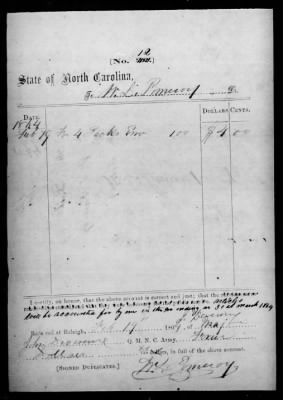 (No. 12
State of North Carolina,
To W. L. Pomeroy Dr.
DATE. DOLLARS CENTS.
1864
Feb 19 To 4 100 $4 00
I certify, on honor, that the above account is correct and just; that the articles
will be accounted for by me in the on 31st March 1864
Received at Raleigh, Feb 19 1864, of Maj
John Devereux Q. M. N. C. Army, Four
Dollars in full of the above account.
[SIGNED DUPLICATES.] W. L. Pomeroy